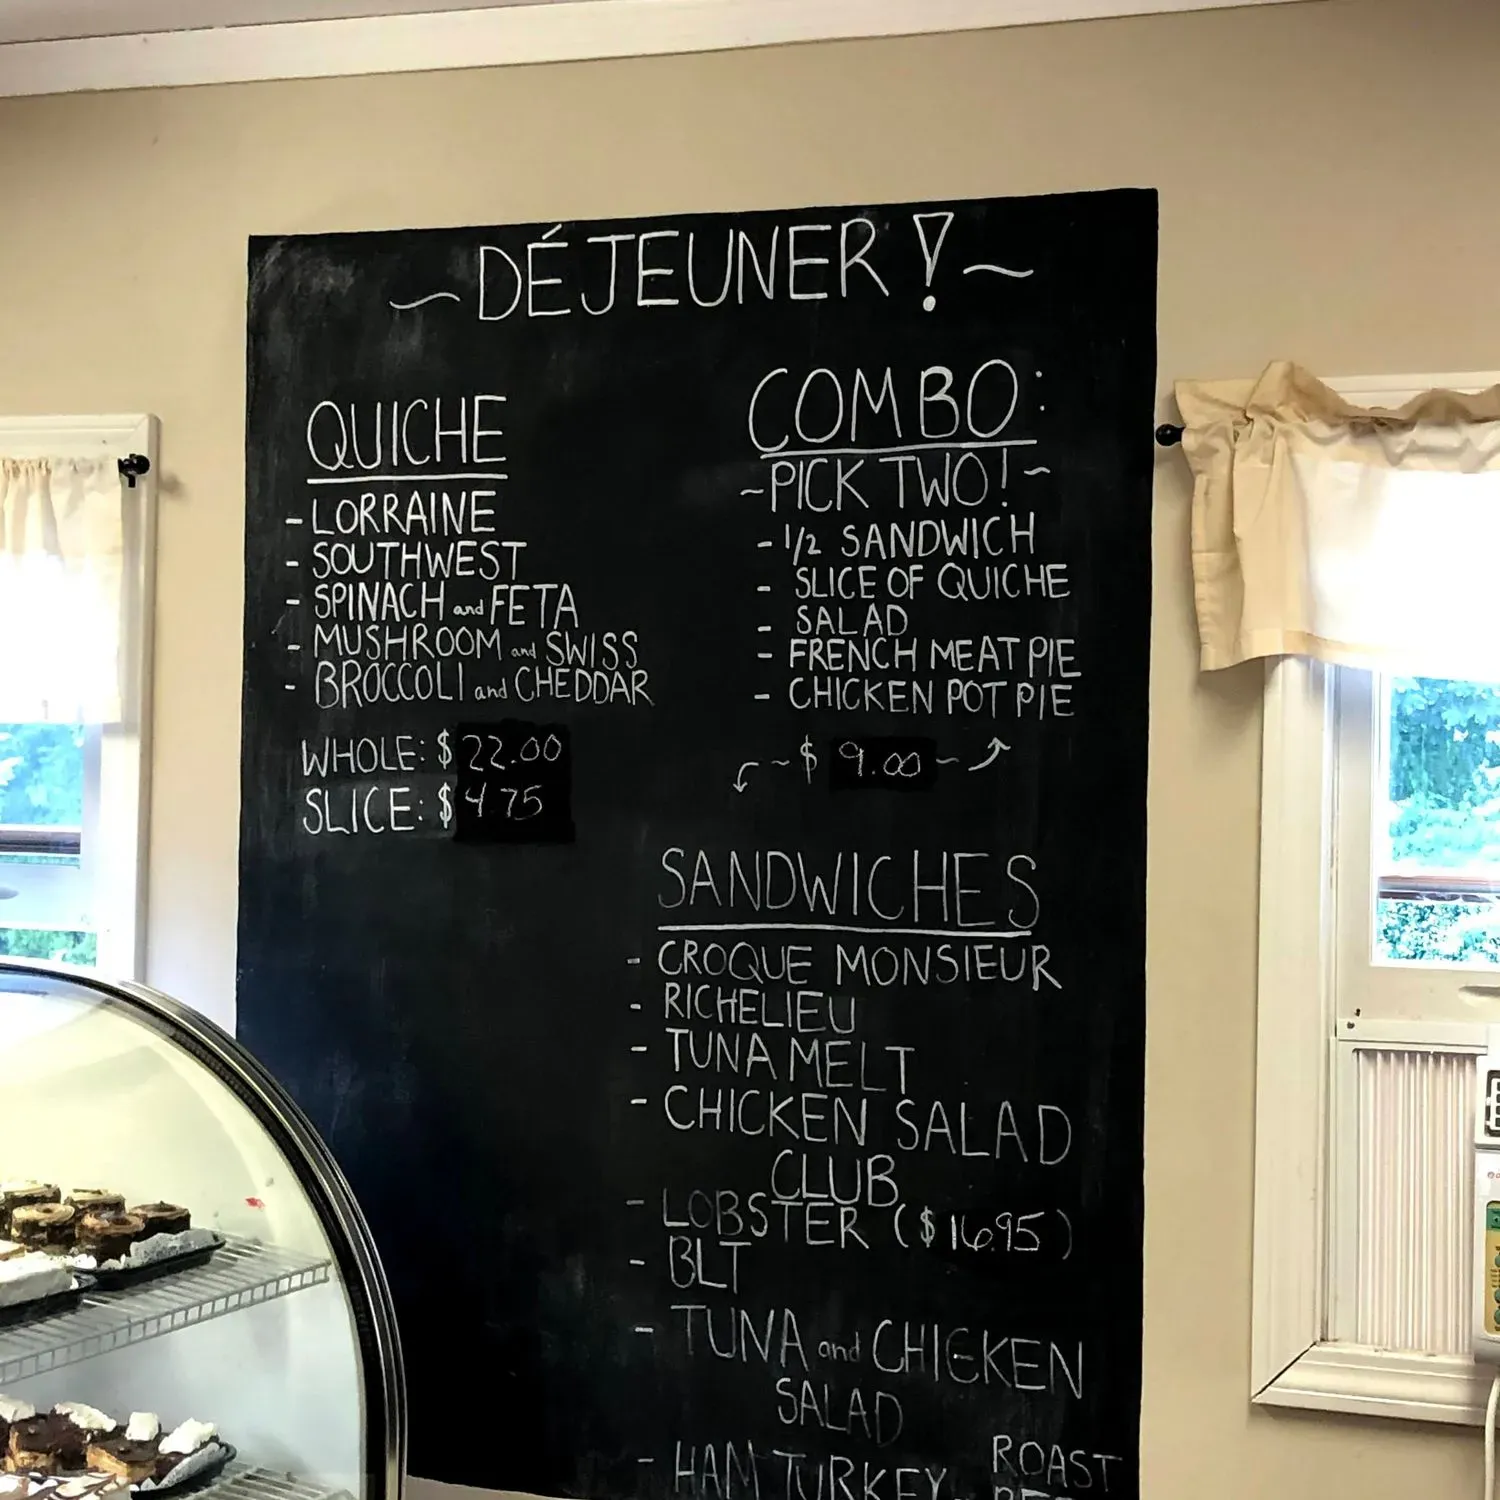 ~ DÉJEUNER! ~
QUICHE
- LORRAINE
- SOUTHWEST
- SPINACH and FETA
- MUSHROOM and SWISS
- BROCCOLI and CHEDDAR
WHOLE: $ 22.00
SLICE: $ 4.75
COMBO:
~PICK TWO!~
- 1/2 SANDWICH
- SLICE OF QUICHE
- SALAD
- FRENCH MEAT PIE
- CHICKEN POT PIE
~ $ 9.00 ~
SANDWICHES
- CROQUE MONSIEUR
- RICHELIEU
- TUNA MELT
- CHICKEN SALAD
CLUB
- LOBSTER ($16.95)
- BLT
- TUNA and CHICKEN
SALAD
- HAM TURKEY ROAST